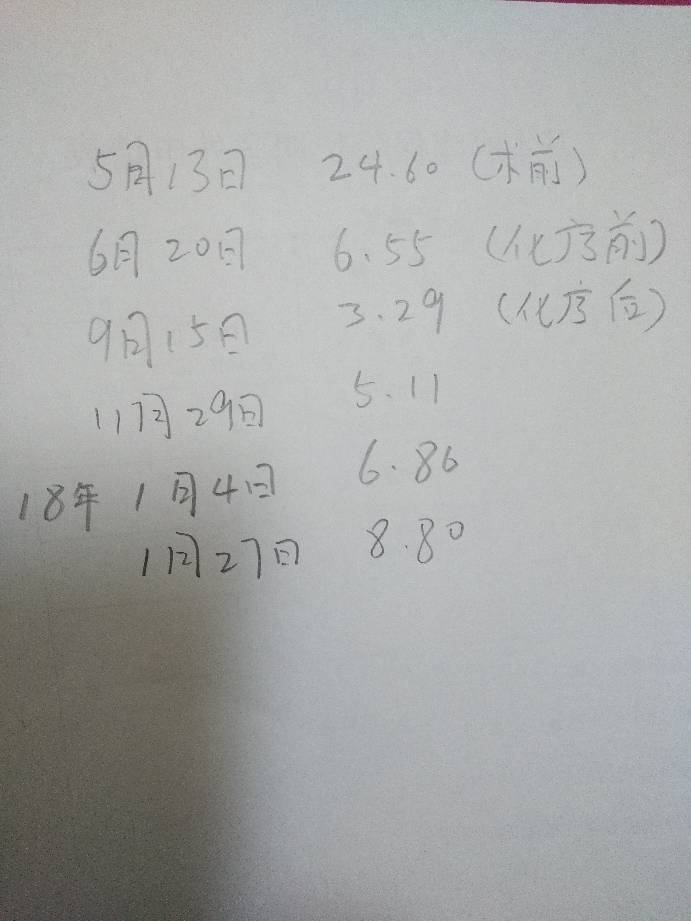 5月13日 24.60 (术前)
6月20日 6.55 (化疗前)
9月15日 3.29 (化疗后)
11月29日 5.11
18年 1月4日 6.86
1月27日 8.80